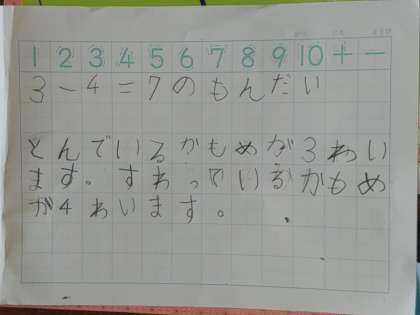 1 2 3 4 5 6 7 8 9 10 + −
3−4=7のもんだい
とんでいるかもめが3わい
ます。すわっているかもめ
が4わいます。